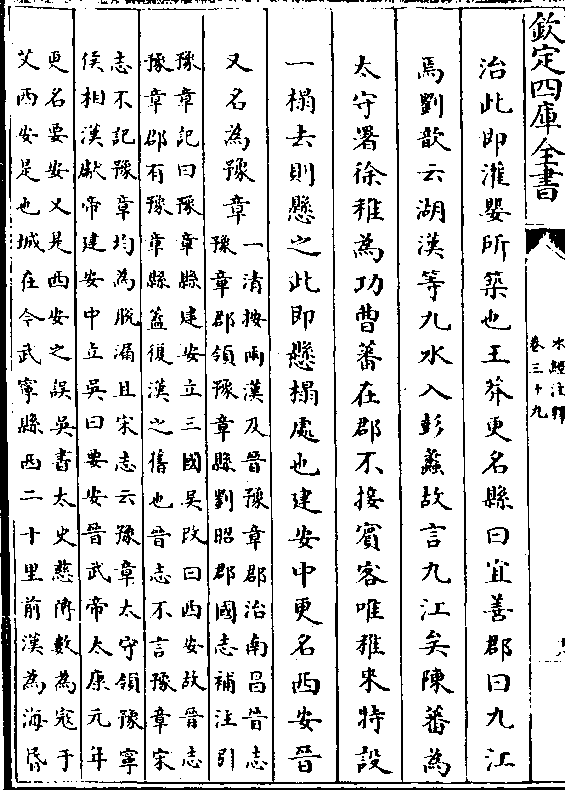 欽定四庫全書
水經注釋
卷三十九
治此即灌嬰所築也王莽更名縣曰宜善郡曰九江
焉劉歆云湖漢等九水入彭蠡故言九江矣陳蕃為
太守署徐稚為功曹蕃在郡不接賓客唯稚來特設
一榻去則懸之此即懸榻處也建安中更名西安晉
又名為豫章
一清按兩漢及晉豫章郡治南昌晉志
豫章郡領豫章縣劉昭郡國志補注引
豫章記曰豫章縣建安立三國吳改曰西安故晉志
豫章郡有豫章縣蓋復漢之舊也晉志不言豫章宋
志不記豫章均為脫漏且宋志云豫章太守領豫寧
侯相漢獻帝建安中立吳曰要安晉武帝太康元年
更名要安又是西安之誤吳書太史慈傳數為寇于
艾西安是也城在今武寧縣西二十里前漢為海昏